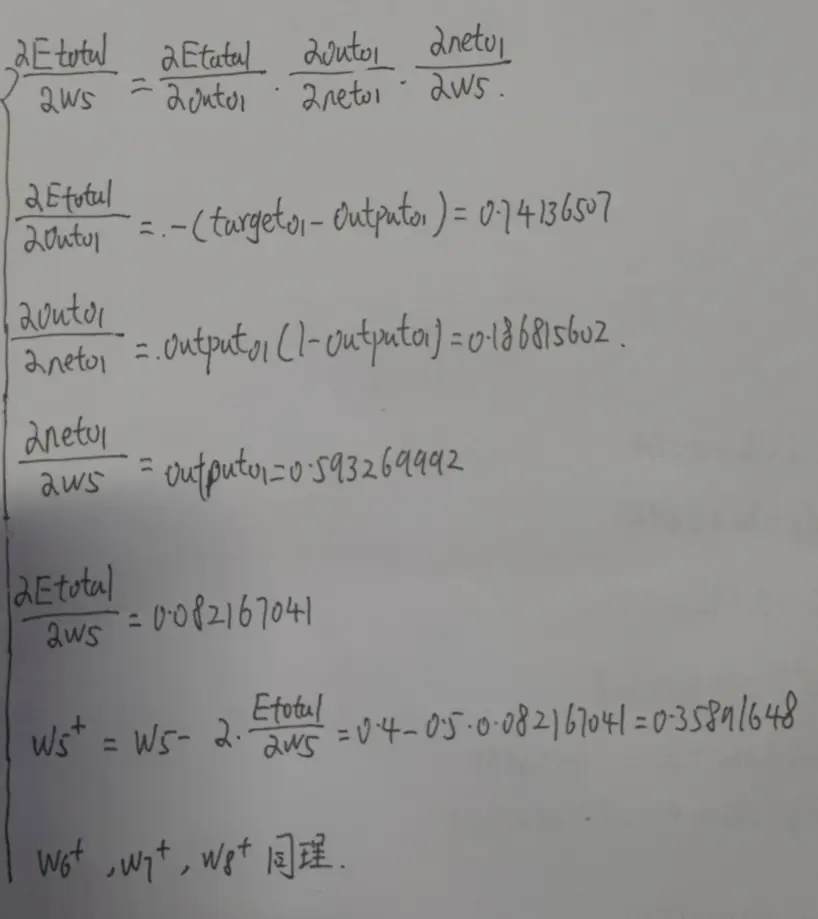 ∂Etotal/∂w5 = ∂Etatal/∂outo1 · ∂outo1/∂neto1 · ∂neto1/∂w5.
∂Etotal/∂outo1 = .-(targeto1 - outputo1) = 0.74136507
∂outo1/∂neto1 = .outputo1(1-outputo1) = 0.186815602.
∂neto1/∂w5 = outputo1 = 0.593269992
∂Etotal/∂w5 = 0.082167041
w5⁺ = w5 - 2·Etotal/∂w5 = 0.4 - 0.5·0.082167041 = 0.35891648
w6⁺, w7⁺, w8⁺ 同理.